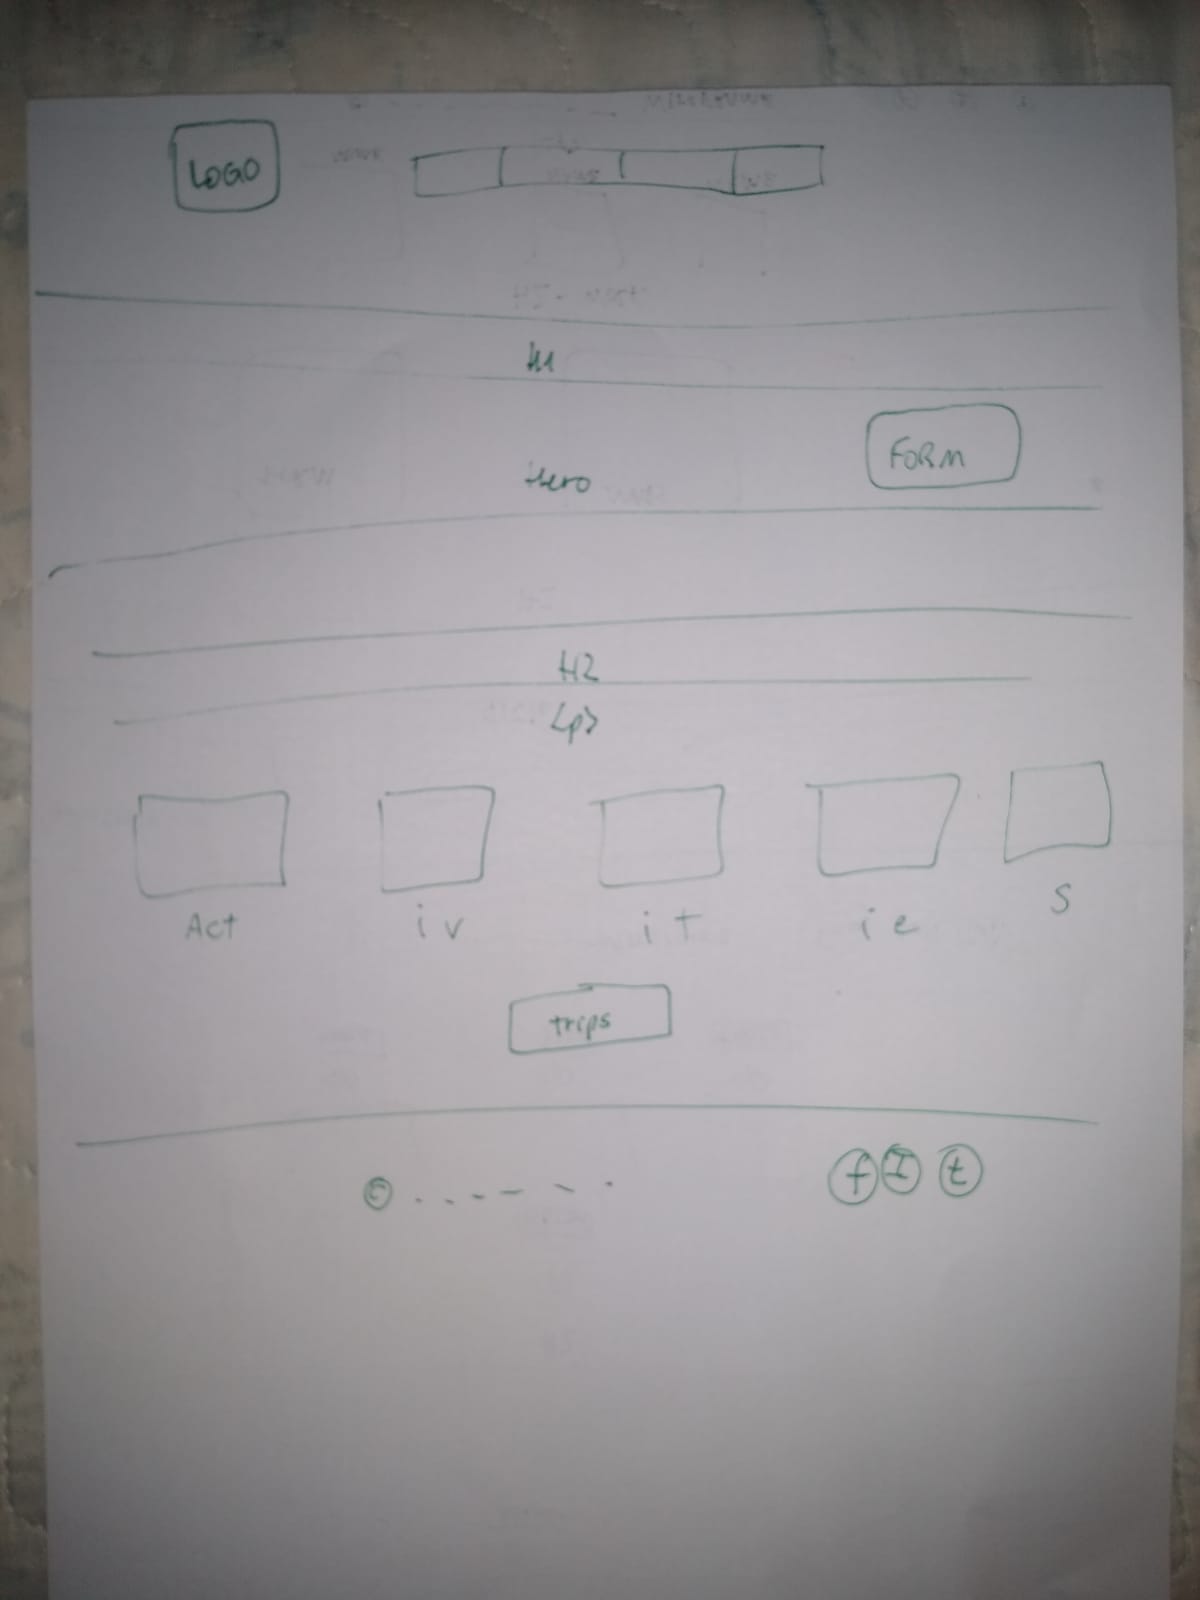 LOGO
H1
FORM
Hero
H2
<p>
Act iv iT ie S
trips
© f I t